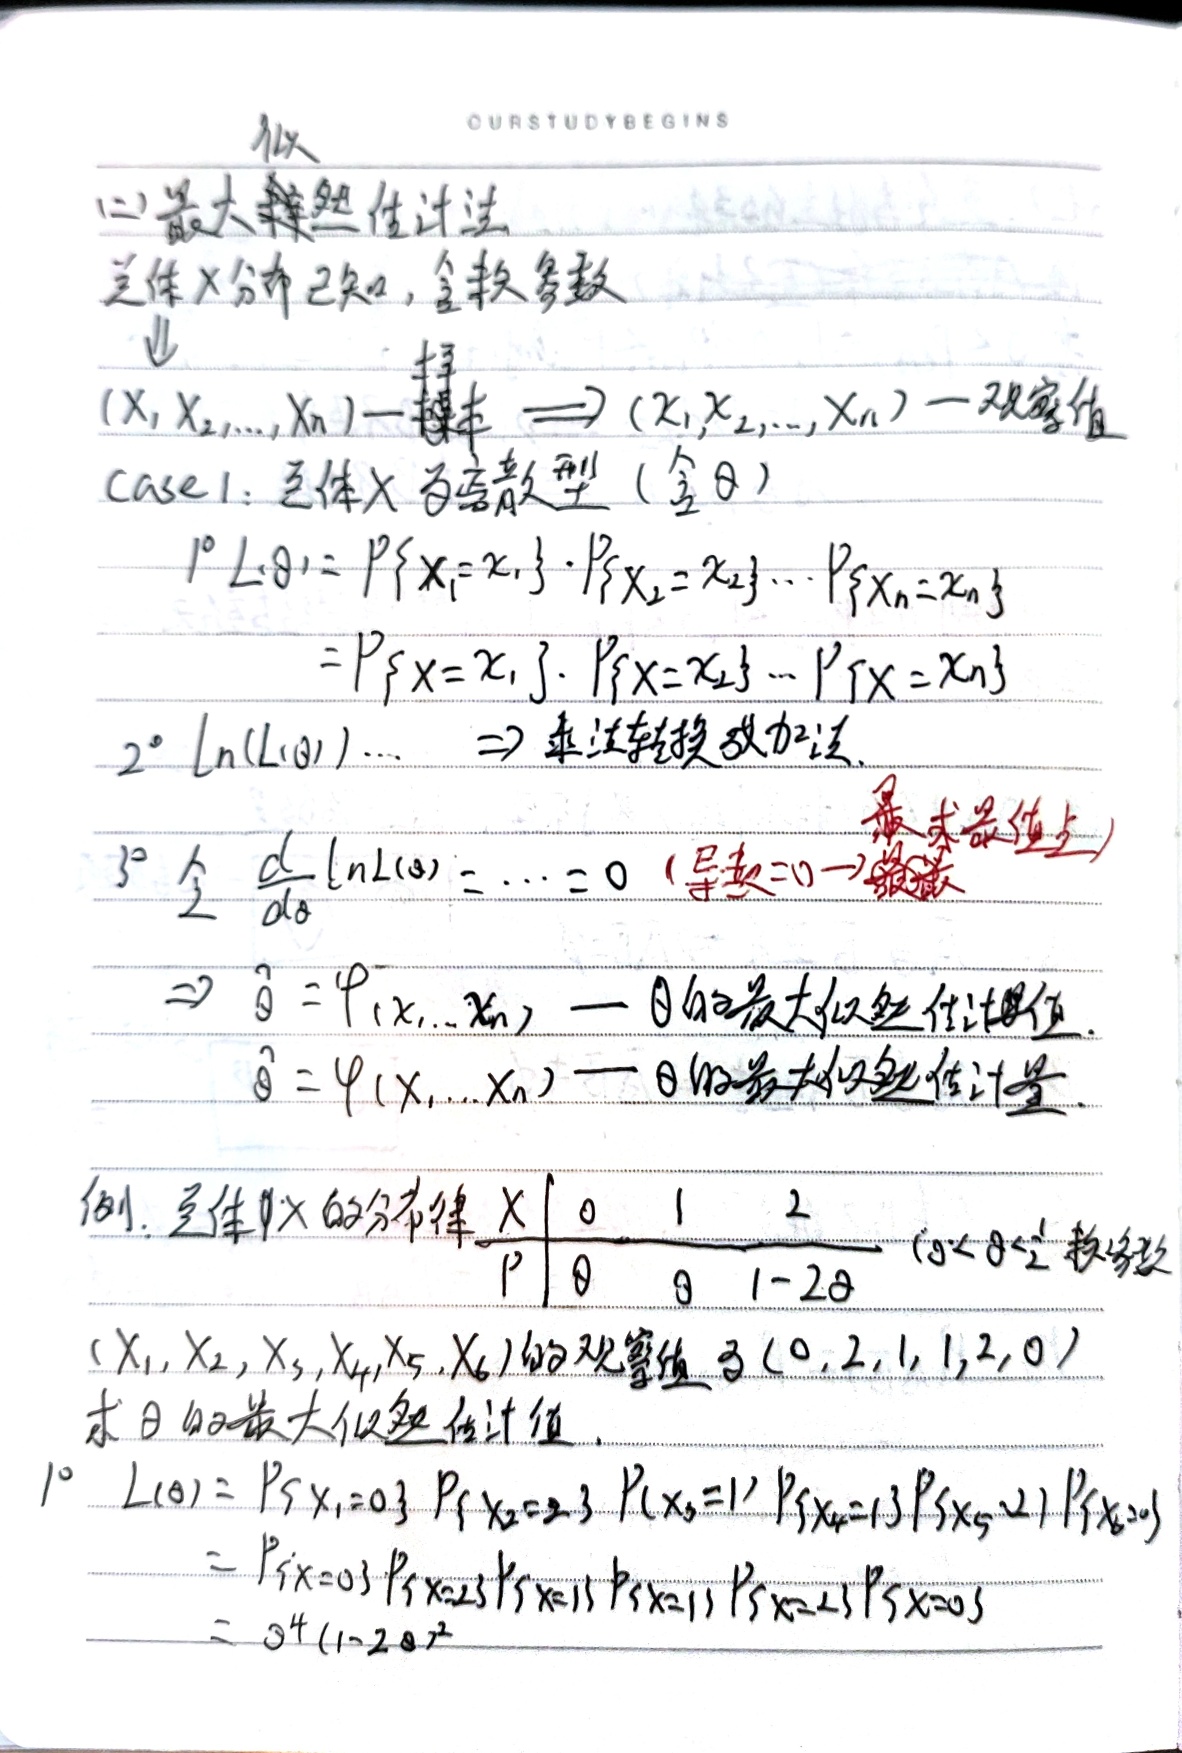 OURSTUDYBEGINS
似
(二) 最大然估计法
总体X分布已知, 含未知参数
⇓
(X₁ X₂,..., Xn) — 样本 ⟹ (x₁, x₂,..., xn) — 观察值
case 1: 总体X为离散型 (含θ)
1° L(θ) = P{X₁=x₁}·P{X₂=x₂}···P{Xn=xn}
= P{X=x₁}·P{X=x₂}···P{X=xn}
2° ln(L(θ))··· ⇒ 乘法转换成加法.
求最值点)
3° 令 d/dθ lnL(θ) = ··· = 0 (导数=0→
⇒ θ̂ = φ(x₁...xn) — θ的最大似然估计值.
θ̂ = φ(X₁...Xn) — θ的最大似然估计量.
例. 总体X的分布律 X | 0 1 2
P | θ θ 1-2θ (0<θ<1/2 参数
(X₁, X₂, X₃, X₄, X₅, X₆)的观察值为(0,2,1,1,2,0)
求θ的最大似然估计值.
1° L(θ) = P{X₁=0} P{X₂=2} P{X₃=1} P{X₄=1} P{X₅=2} P{X₆=0}
= P{X=0} P{X=2} P{X=1} P{X=1} P{X=2} P{X=0}
= θ⁴(1-2θ)²